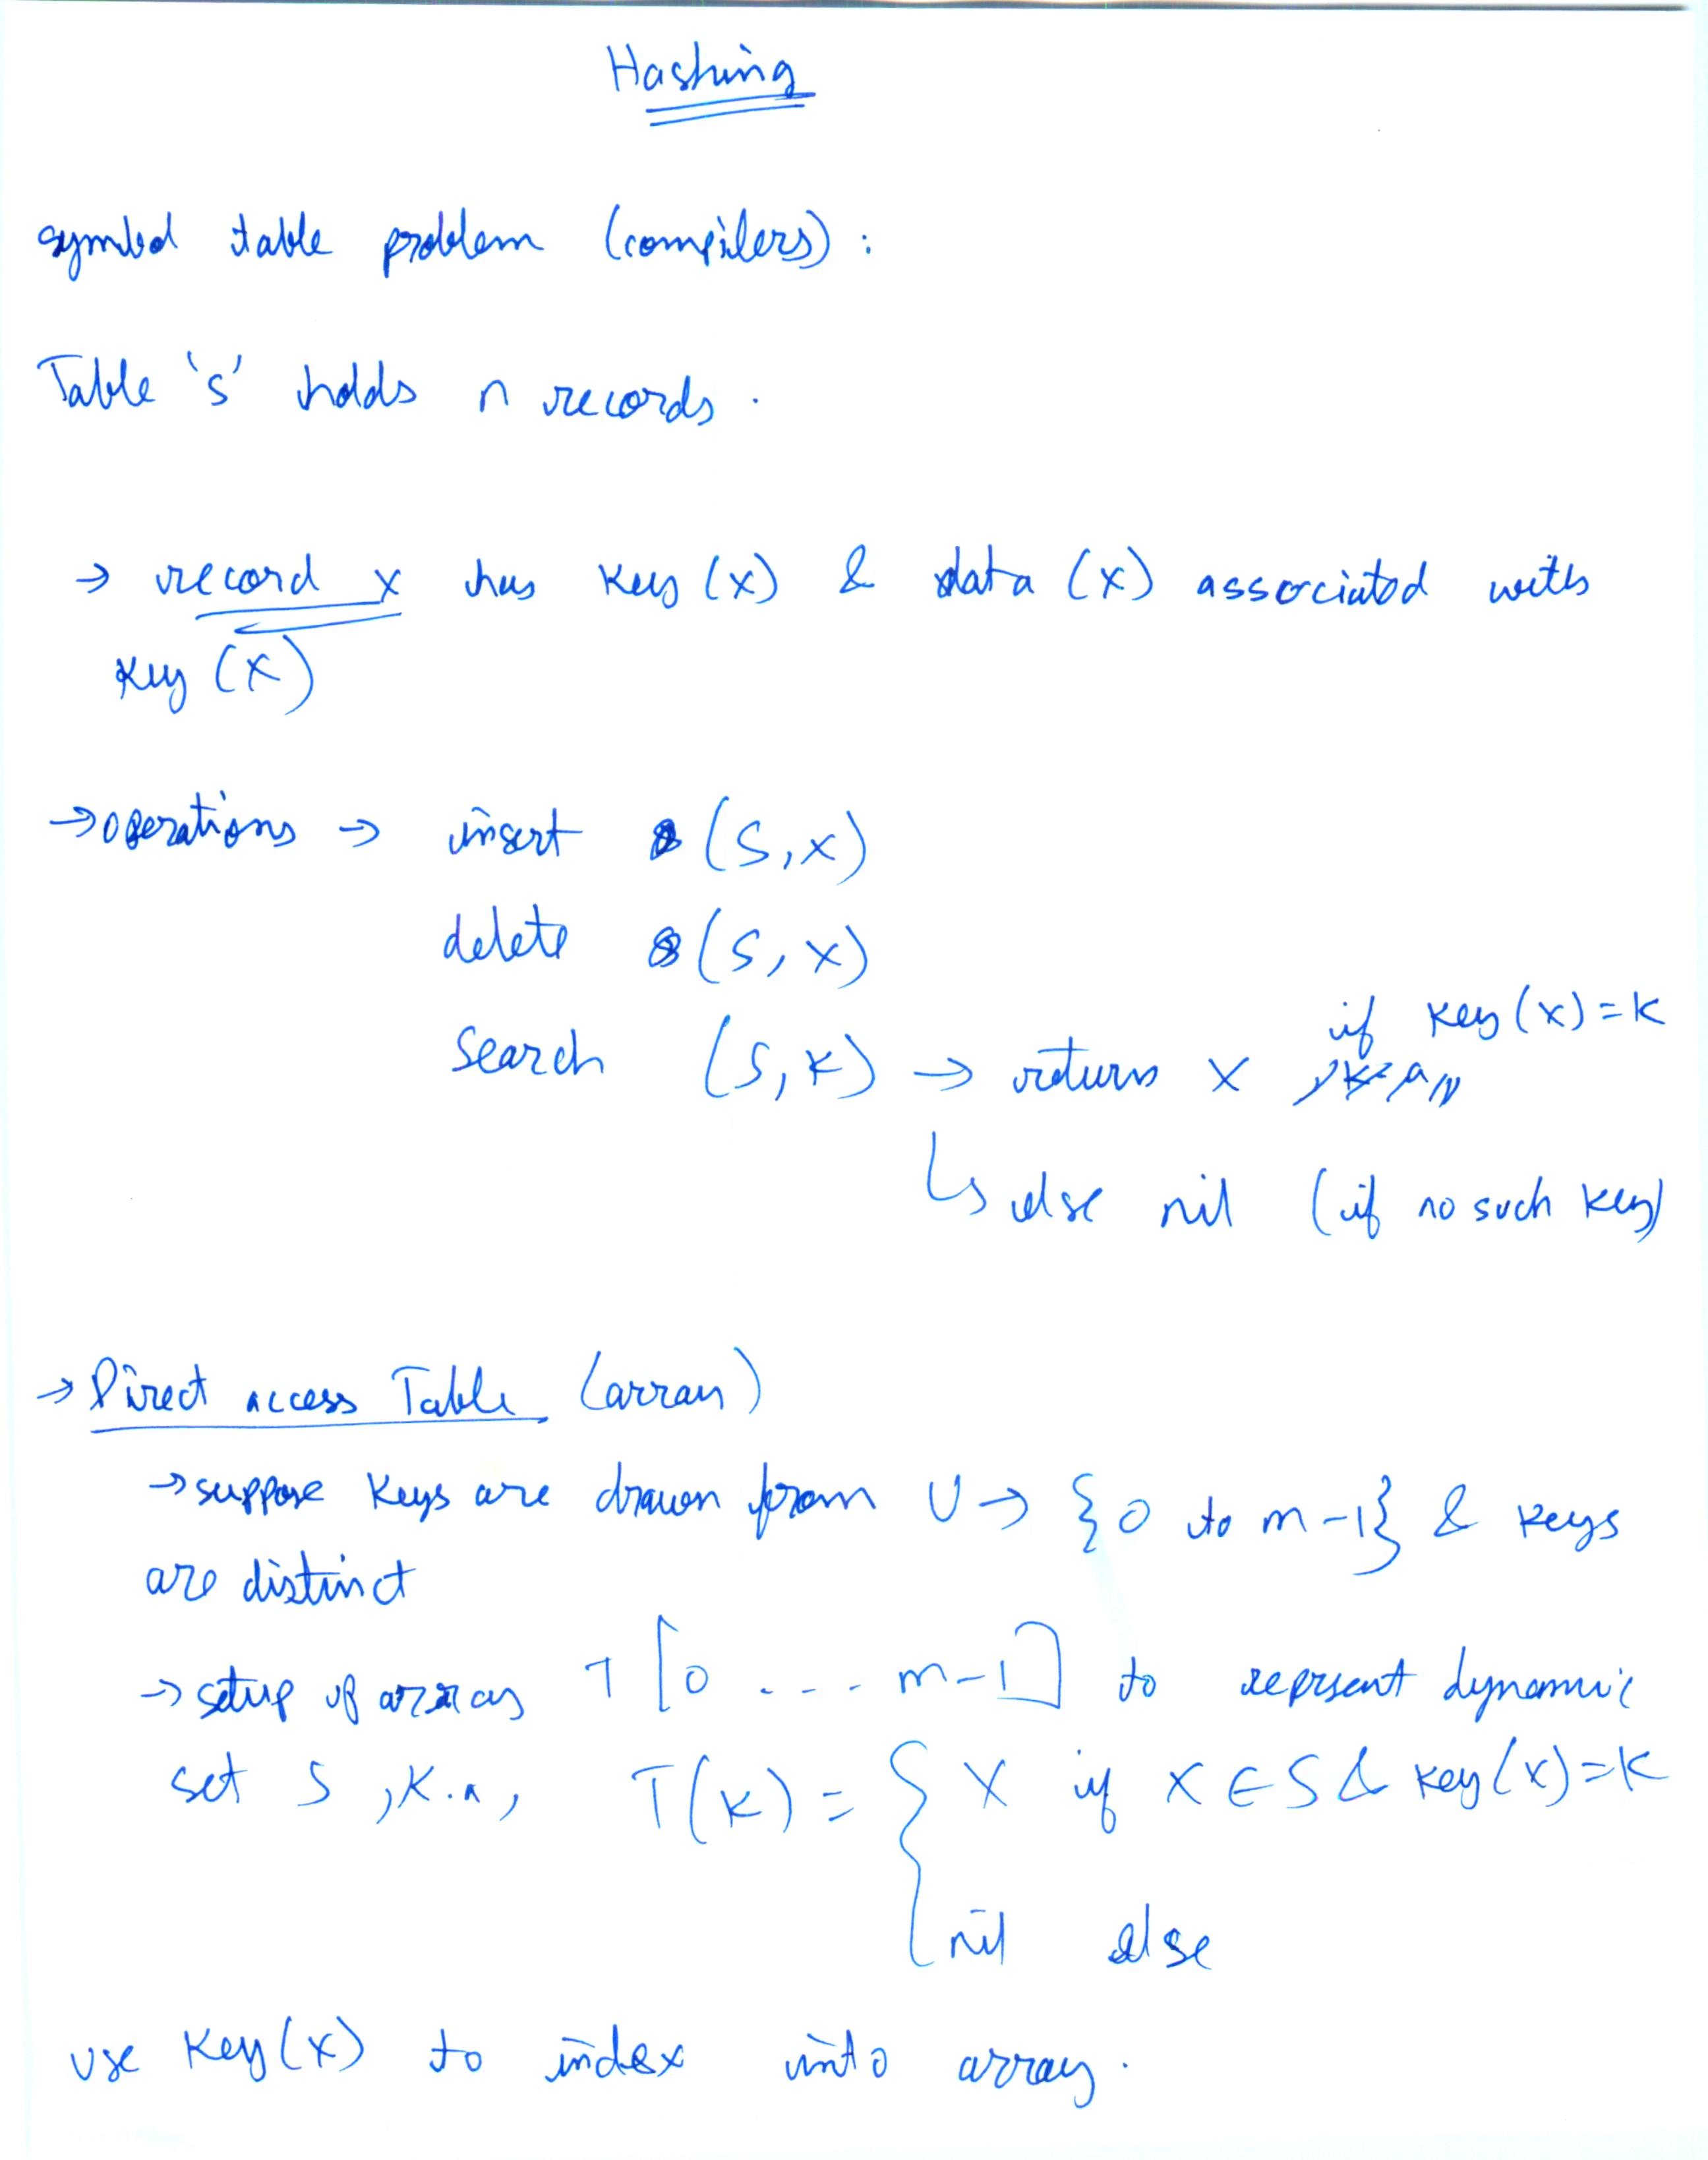 Hashing
symbol table problem (compilers) :
Table 's' holds n records .
→ record x has key (x) & data (x) associated with
key (x)
→ operations → insert (S, x)
delete (S, x)
search (S, k) → return x if key (x) = k
↳ else nil (if no such key)
→ Direct access Table (array)
→ suppose keys are drawn from U → {0 to m-1} & keys
are distinct
→ setup of array T [0 .... m-1] to represent dynamic
set S , T(k) = { x if x ∈ S & key (x) = k
nil else
use key (x) to index into array .